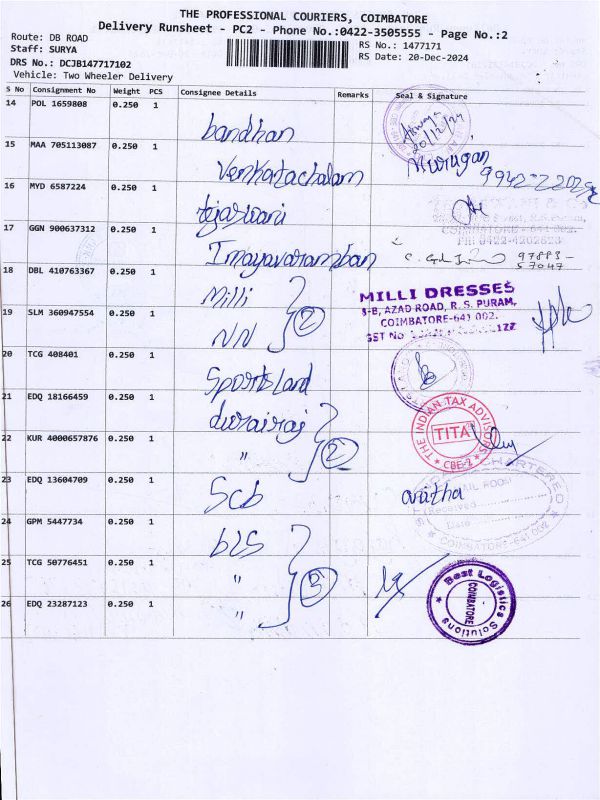 THE PROFESSIONAL COURIERS, COIMBATORE
Delivery Runsheet - PC2 - Phone No.:0422-3505555 - Page No.:2
Route: DB ROAD
Staff: SURYA
DRS No.: DCJB147717102
Vehicle: Two Wheeler Delivery
RS No.: 1477171
RS Date: 20-Dec-2024
S No Consignment No Weight PCS Consignee Details Remarks Seal & Signature
14 POL 1659808 0.250 1 bandhan
20/12/24
15 MAA 705113087 0.250 1 Venkatachalam Murugan
16 MYD 6587224 0.250 1
COIMBATORE - 641 002.
PH: 0422-4202623
17 GGN 900637312 0.250 1 Imayavaramban 97883-
57047
18 DBL 410763367 0.250 1 Milli
MILLI DRESSES
8-B, AZAD ROAD, R.S. PURAM,
COIMBATORE-641 002.
GST No
19 SLM 360947554 0.250 1 NN 2
20 TCG 408401 0.250 1 Sportsland
21 EDQ 18166459 0.250 1 durairaj
THE INDIAN TAX ADVISORS
TITA
CBE-2
22 KUR 4000657876 0.250 1 " 2
23 EDQ 13604709 0.250 1 Scb
CHARTERED
MAIL ROOM
Received
Date
COIMBATORE-641 002
24 GPM 5447734 0.250 1 bls
25 TCG 50776451 0.250 1 " 3
26 EDQ 23287123 0.250 1 "
Best Logistics Solutions
COIMBATORE